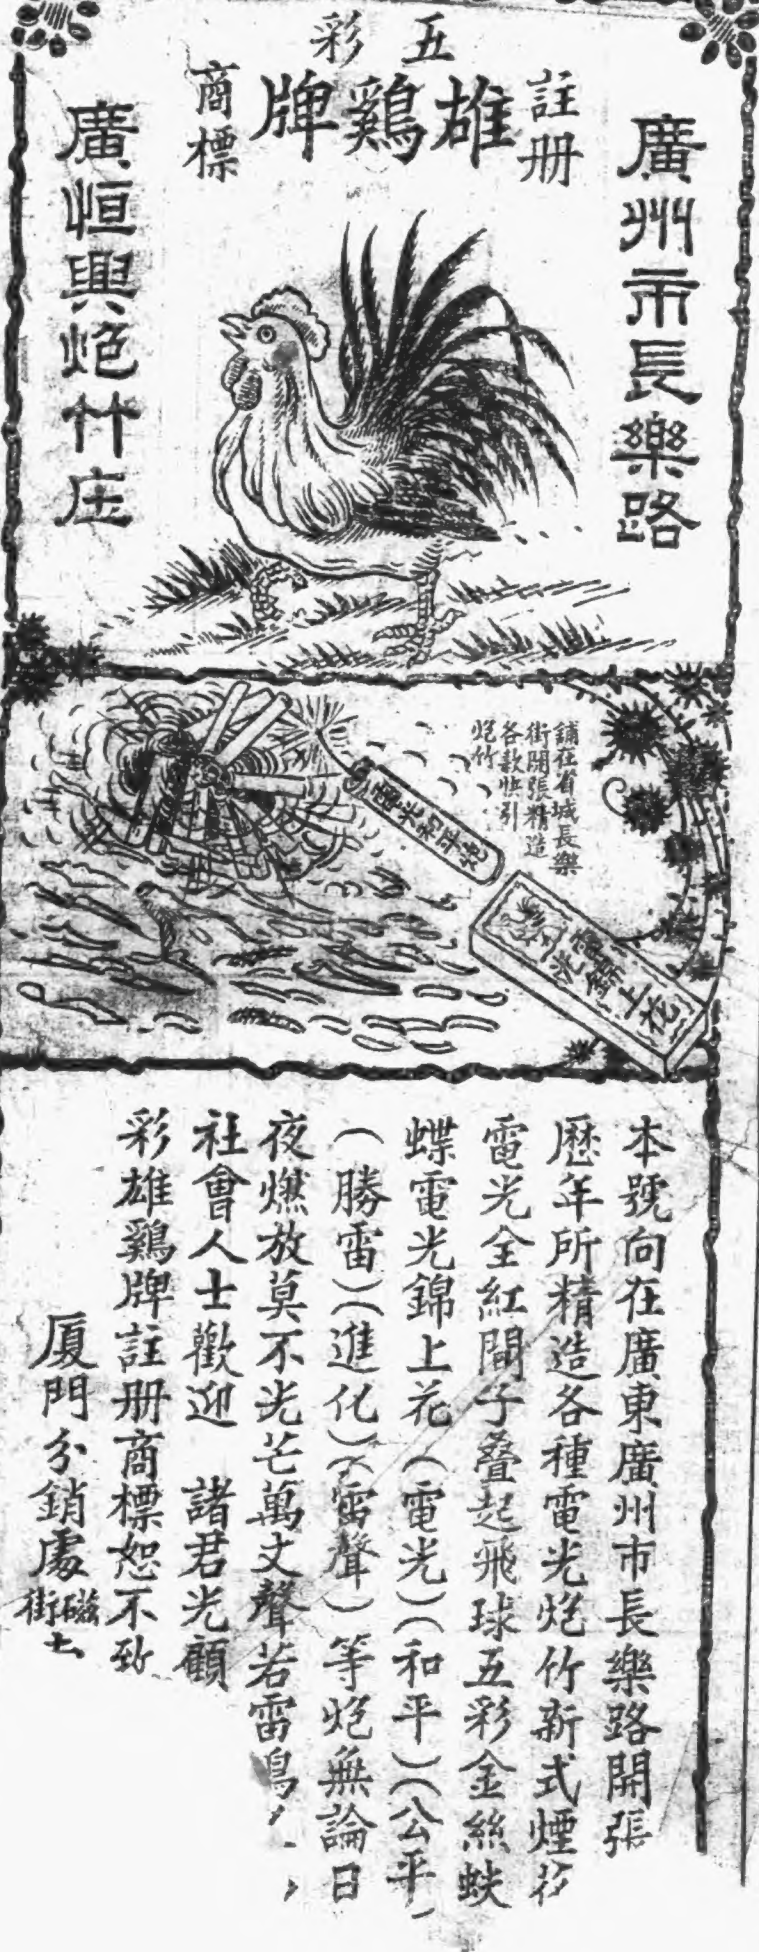 五彩
註冊
雄鷄牌
商標
廣州市長樂路
廣恒興炮竹庄
舖在省城長樂
街開張精造
各款快引
炮竹
電光和平炮
電光錦上花
本號向在廣東廣州市長樂路開張
歷年所精造各種電光炮竹新式煙花
電光全紅間子叠起飛球五彩金絲蚨
蝶電光錦上花（電光）（和平）（公平
（勝雷）（進化）（雷聲）等炮無論日
夜燃放莫不光芒萬丈聲若雷鳴
社會人士歡迎 諸君光顧
彩雄鷄牌註册商標恕不致
厦門分銷處磁
街